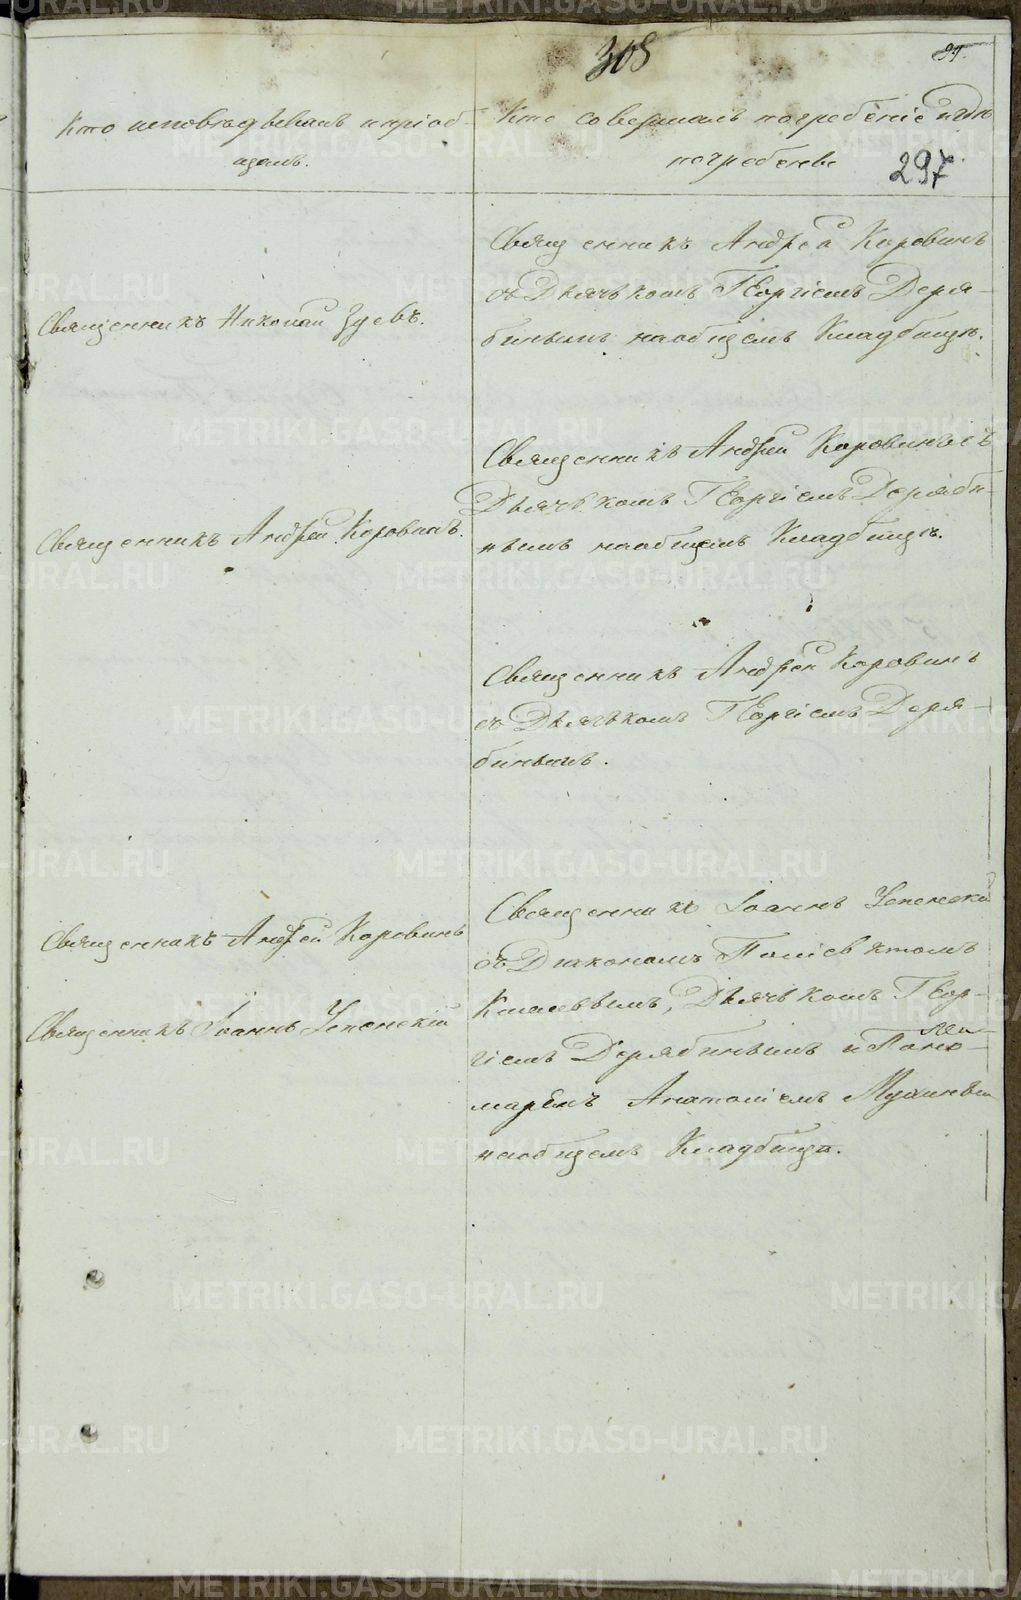 305
94.
Кто исповѣдывалъ и пріоб-
щалъ.
Кто совершалъ погребеніе и гдѣ
погребены
297
Священникъ Андрей Коровинъ
съ Дьячькомъ Георгіемъ Деря-
бинымъ на общемъ Кладбищѣ.
Священникъ Николай
Священникъ Андрей Коровинъ съ
Дьячькомъ Георгіемъ Деряби-
нымъ на общемъ Кладбищѣ.
Священникъ Андрей Коровинъ.
Священникъ Андрей Коровинъ
съ Дьячькомъ Георгіемъ Деря-
бинымъ.
Священникъ Андрей Коровинъ
Священникъ Іоаннъ Успенскій
Священникъ Іоаннъ Успенскій
съ Діакономъ Поліевктомъ
Дьячькомъ Геор-
гіемъ Дерябинымъ и Поно-
маремъ Анатоліемъ
на общемъ Кладбищѣ.
METRIKI.GASO-URAL.RU